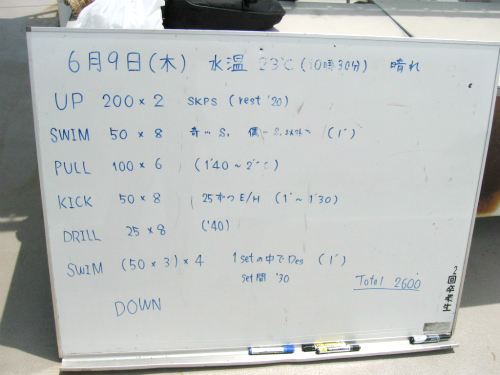 6月9日(木) 水温 23℃(10時30分) 晴れ
UP 200×2 SKPS (rest '20)
SWIM 50×8 奇…S. 偶… (1')
PULL 100×6 (1'40~2'
KICK 50×8 25ずつE/H (1'~1'30)
DRILL 25×8 ('40)
SWIM (50×3)×4 1setの中でDes (1')
set間 '30
Total 2600
DOWN